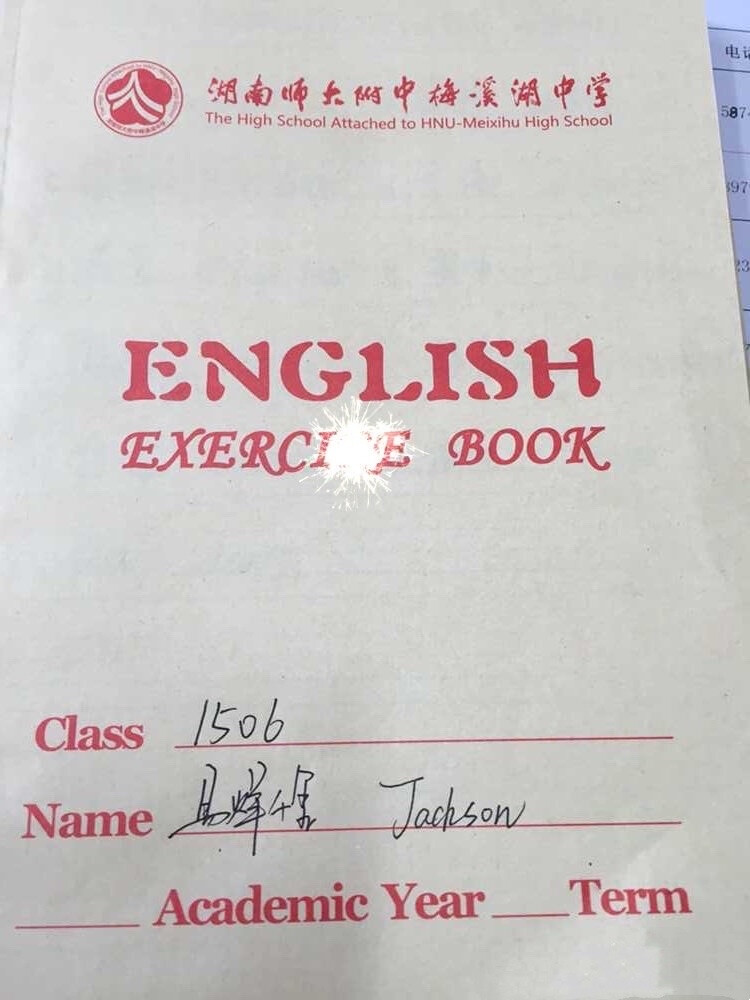 湖南师大附中梅溪湖中学
The High School Attached to HNU-Meixihu High School
ENGLISH
BOOK
Class 1506
Name Jackson
Academic Year Term
电话